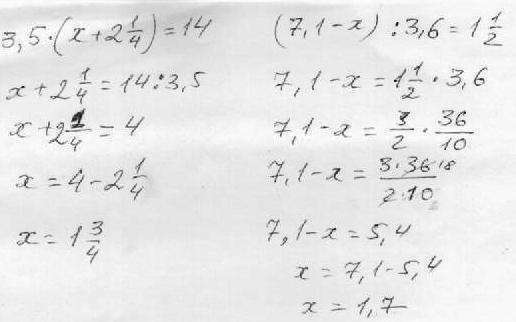 3,5·(x+2 1/4)=14
x+2 1/4=14:3,5
x+2 1/4=4
x=4-2 1/4
x=1 3/4
(7,1-x):3,6=1 1/2
7,1-x=1 1/2·3,6
7,1-x=3/2·36/10
7,1-x=3·36 18/2·10
7,1-x=5,4
x=7,1-5,4
x=1,7